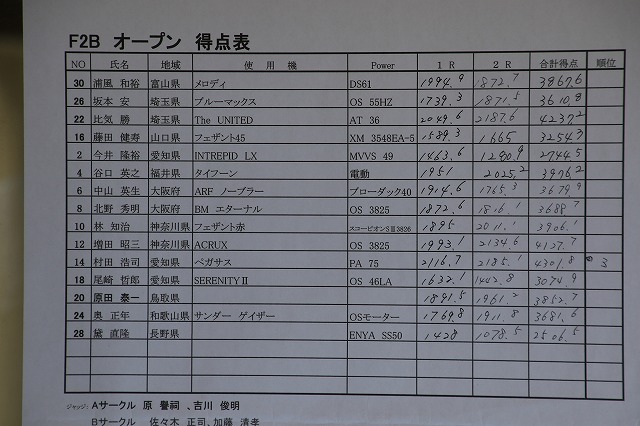 F2B オープン 得点表
NO 氏名 地域 使用機 Power 1R 2R 合計得点 順位
30 浦風 和裕 富山県 メロディ DS61 1994.9 1872.7 3867.6
26 坂本 安 埼玉県 ブルーマックス OS 55HZ 1739.3 1871.5 3610.8
22 比気 勝 埼玉県 The UNITED AT 36 2049.6 2187.6 4237.2
16 藤田 健寿 山口県 フェザント45 XM 3548EA-5 1589.3 1665 3254.3
2 今井 隆裕 愛知県 INTREPID LX MVVS 49 1463.6 1280.9 2744.5
4 谷口 英之 福井県 タイフーン 電動 1951 2025.2 3976.2
6 中山 英生 大阪府 ARF ノーブラー ブローダック40 1914.6 1765.3 3679.9
8 北野 秀明 大阪府 BM エターナル OS 3825 1872.6 1816.1 3688.7
10 林 知治 神奈川県 フェザント赤 スコーピオンSⅢ3826 1895 2011.1 3906.1
12 増田 昭三 神奈川県 ACRUX OS 3825 1993.1 2134.6 4127.7
14 村田 浩司 愛知県 ペガサス PA 75 2116.7 2185.1 4301.8 3
18 尾崎 哲郎 愛知県 SERENITYⅡ OS 46LA 1632.1 1442.8 3074.9
20 原田 泰一 鳥取県 1891.5 1961.2 3852.7
24 奥 正年 和歌山県 サンダー ゲイザー OSモーター 1769.8 1911.8 3681.6
28 黛 直隆 長野県 ENYA SS50 1428 1078.5 2506.5
ジャッジ: Aサークル 原 誉祠 、吉川 俊明
Bサークル 佐々木 正司、加藤 清孝